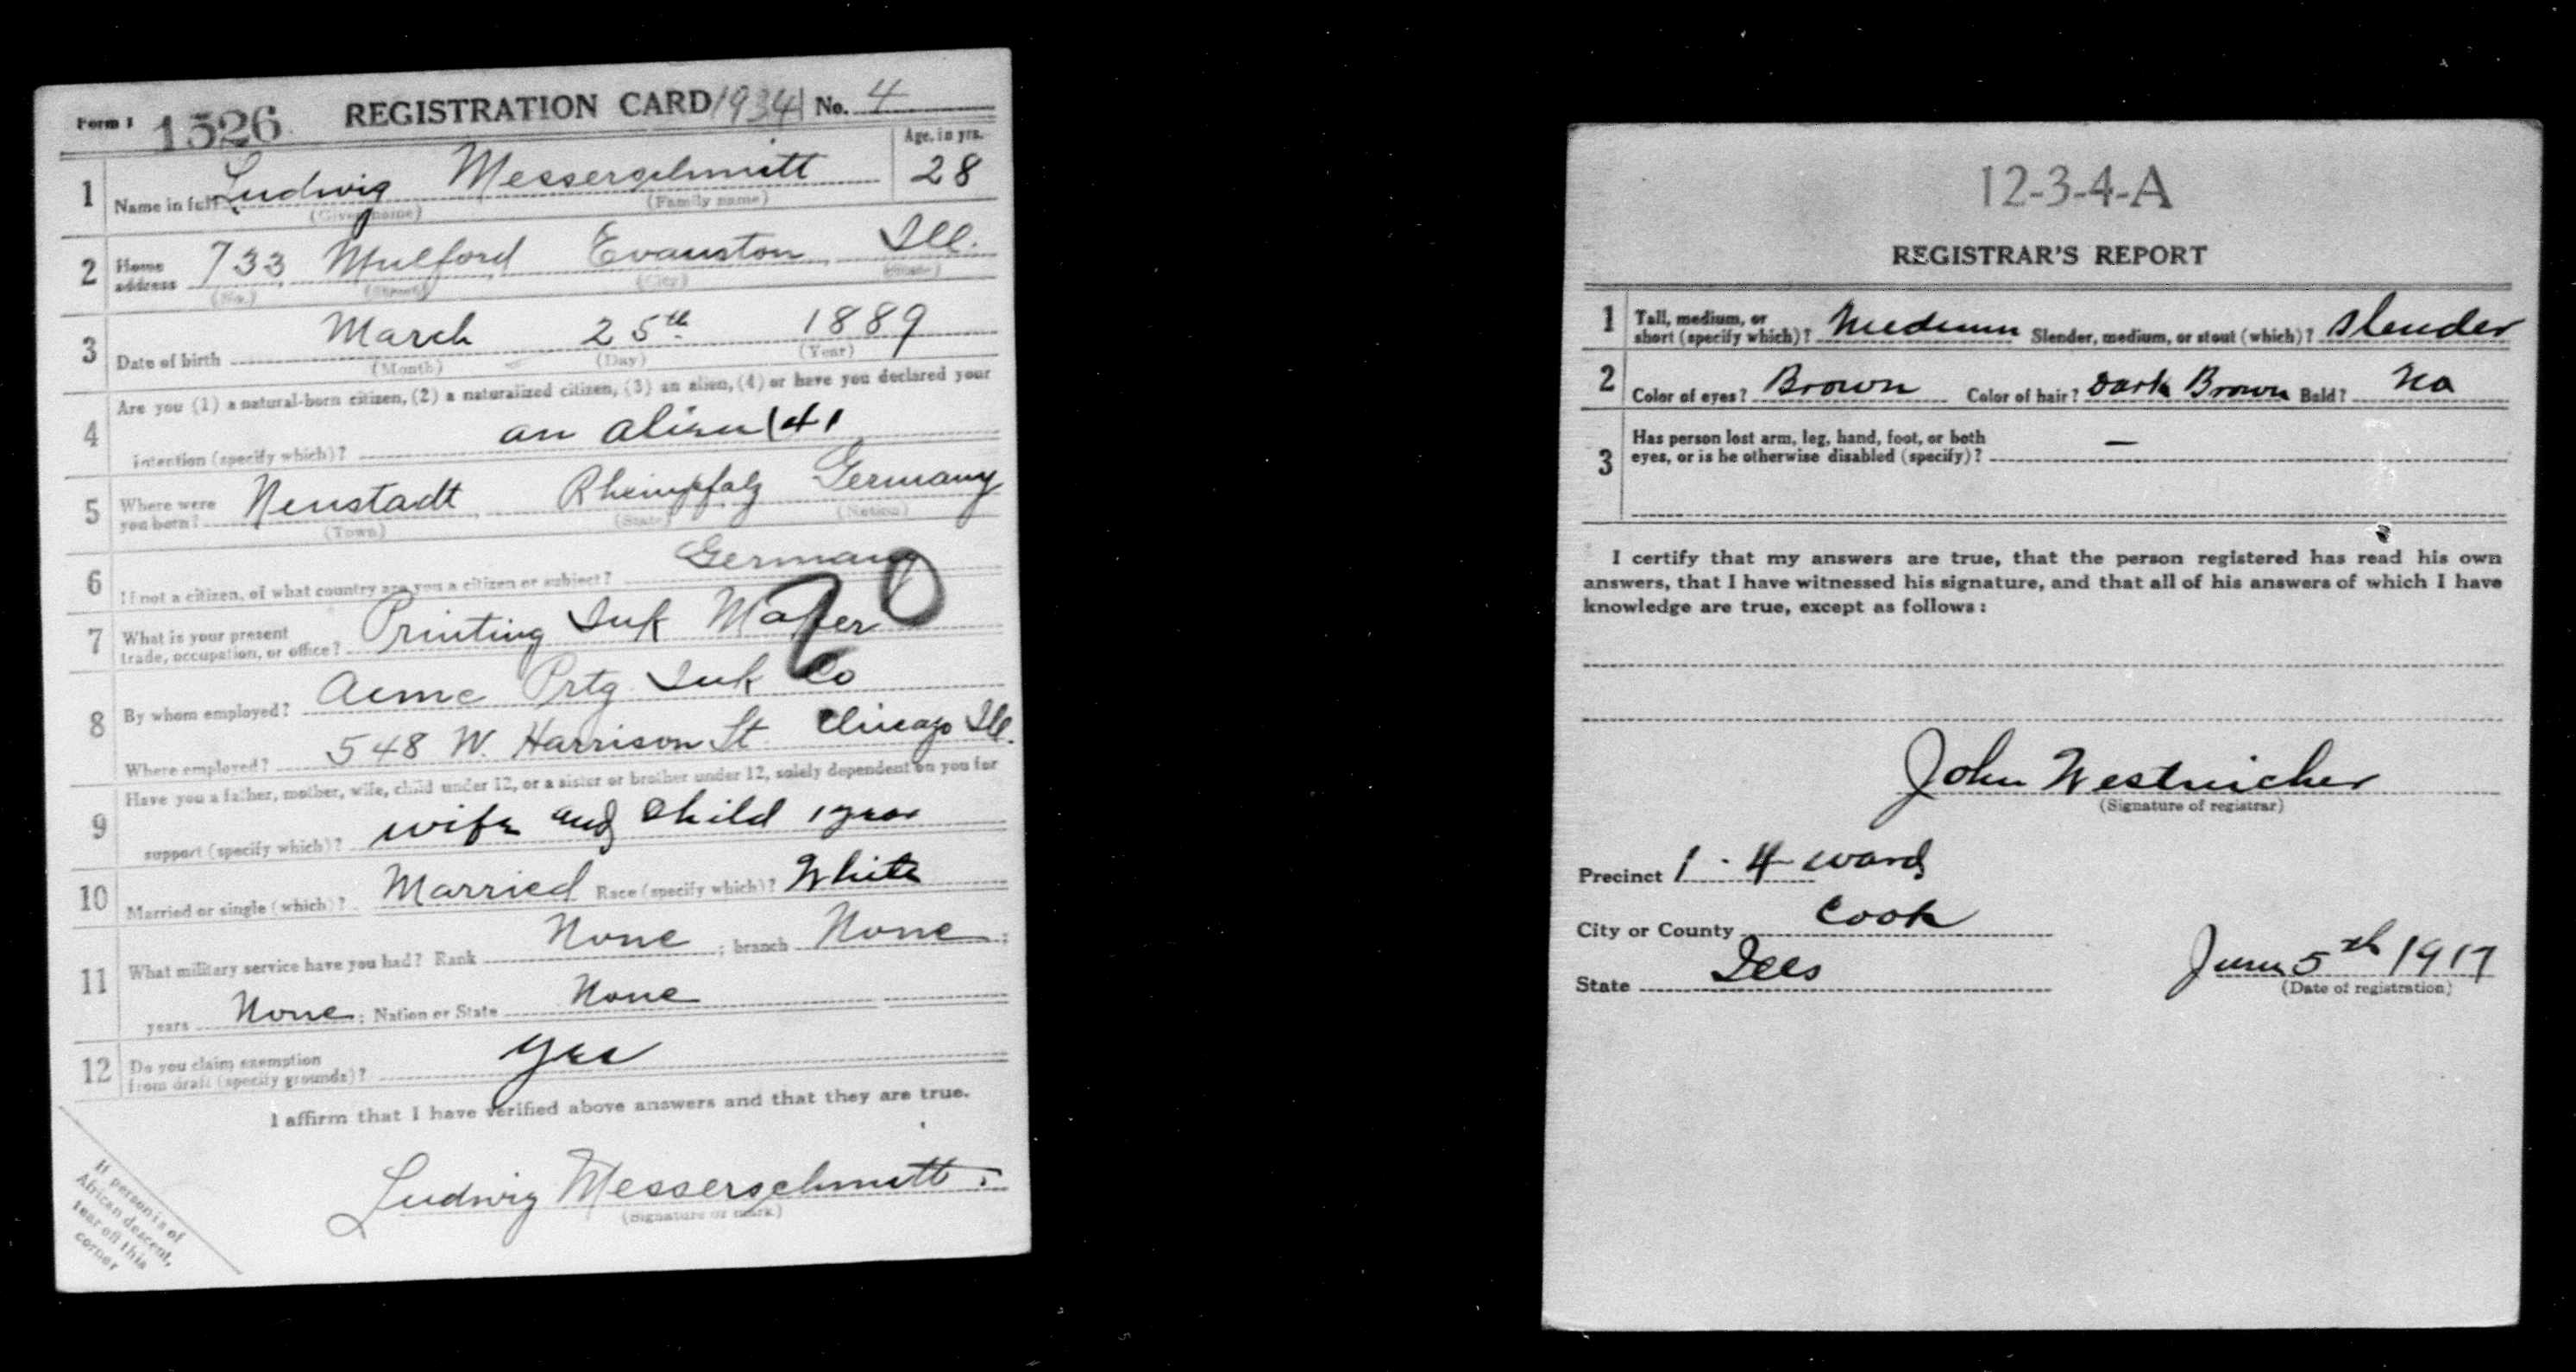 Form 1 1526 REGISTRATION CARD 1934 No. 4
Age, in yrs.
1 Name in full Ludwig Messerschmitt 28
(Given name) (Family name)
2 Home address 733 Mulford Evanston Ill.
(No.) (Street) (City) (State)
3 Date of birth March 25th 1889
(Month) (Day) (Year)
Are you (1) a natural-born citizen, (2) a naturalized citizen, (3) an alien, (4) or have you declared your
4 intention (specify which)? an alien (4)
5 Where were you born? Neustadt Rheinpfalz Germany
(Town) (State) (Nation)
6 If not a citizen, of what country are you a citizen or subject? Germany
7 What is your present
trade, occupation, or office? Printing Ink Maker
8 By whom employed? Acme Prtg Ink Co
Where employed? 548 W. Harrison St Chicago Ill.
Have you a father, mother, wife, child under 12, or a sister or brother under 12, solely dependent on you for
9 support (specify which)? wife and child 1 year
10 Married or single (which)? Married Race (specify which)? White
11 What military service have you had? Rank None ; branch None ;
years None ; Nation or State None
12 Do you claim exemption
from draft (specify grounds)? yes
I affirm that I have verified above answers and that they are true.
Ludwig Messerschmitt.
(Signature or mark)
If person is of
African descent,
tear off this
corner
12-3-4-A
REGISTRAR'S REPORT
1 Tall, medium, or
short (specify which)? Medium Slender, medium, or stout (which)? slender
2 Color of eyes? Brown Color of hair? Dark Brown Bald? No
3 Has person lost arm, leg, hand, foot, or both
eyes, or is he otherwise disabled (specify)? —
I certify that my answers are true, that the person registered has read his own
answers, that I have witnessed his signature, and that all of his answers of which I have
knowledge are true, except as follows:
John
(Signature of registrar)
Precinct 1 - 4 ward
City or County Cook
State Ills June 5th 1917
(Date of registration)